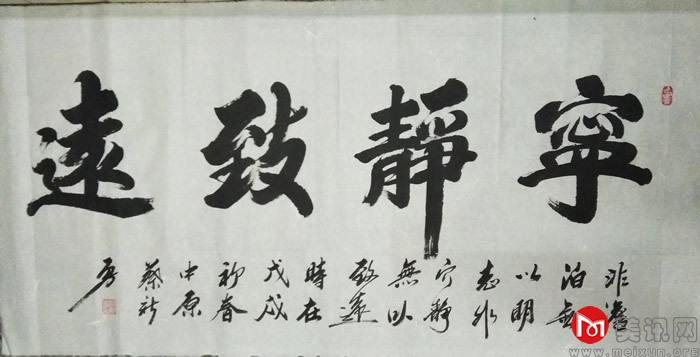 寧靜致遠
非澹
泊無
以明
志非
宁靜
無以
致遠
時在
戊戌
初春
中原
蔡新
房
美讯网
www.meixun.org